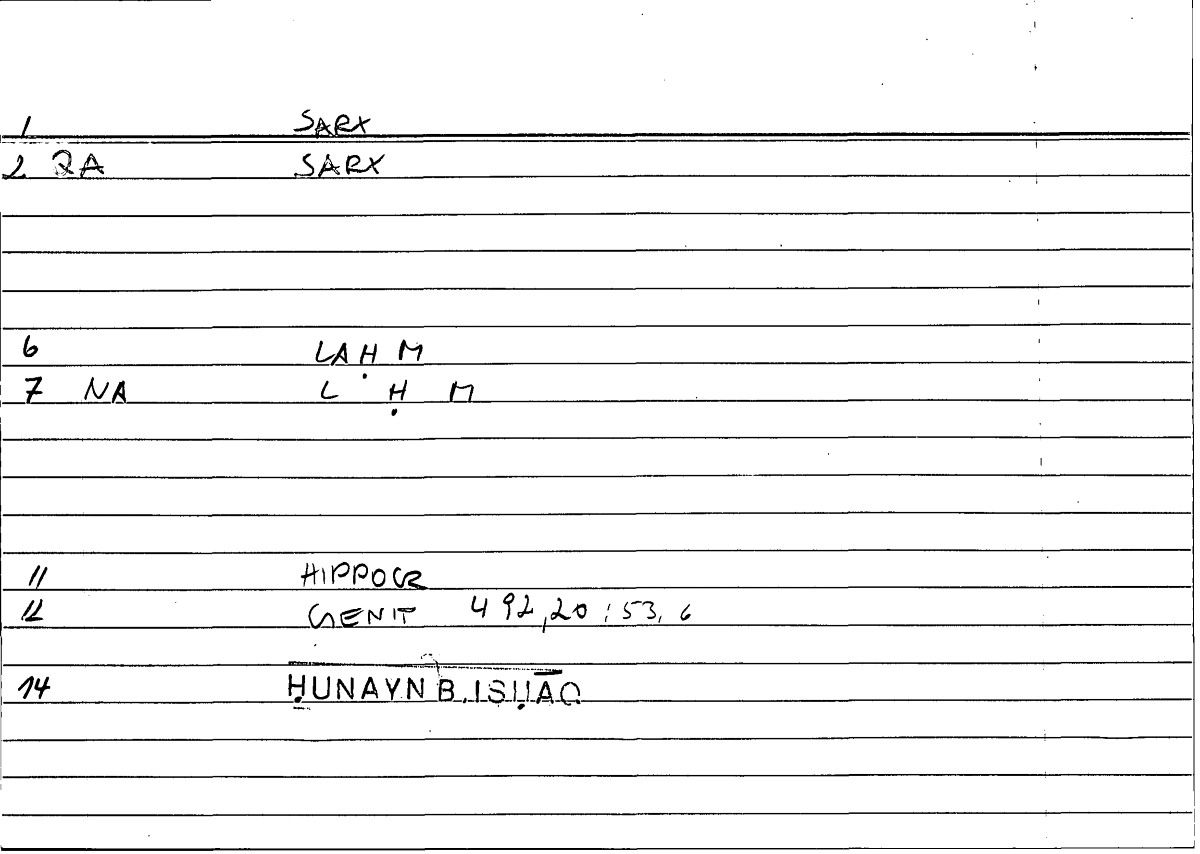 1 SARX
2 QA SARX
6 LAḤM
7 NA L Ḥ M
11 HIPPOCR
12 GENIT 492,20 : 53, 6
14 ḤUNAYN B. ISḤĀQ